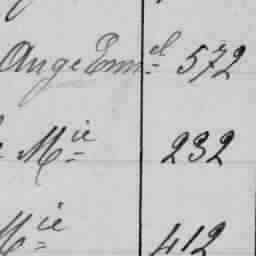 Ange Emm.el 572
Mie 232
Mie 412